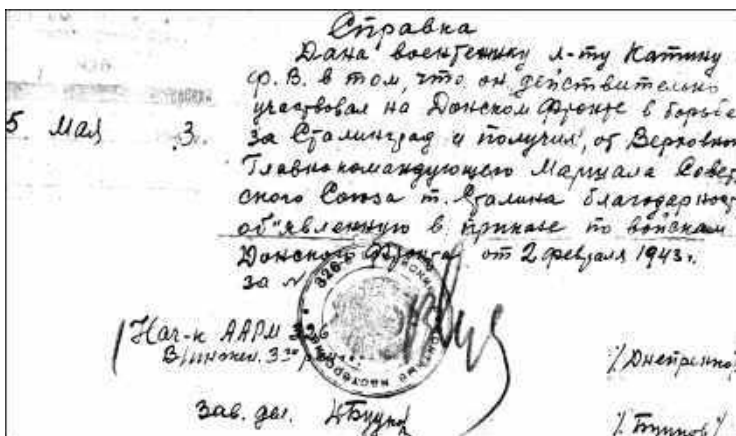 Справка
Дана воентехнику л-ту Катину
Ф. В. в том, что он действительно
участвовал на Донском фронте в борьбе
5 Мая 3. за Сталинград и получил, от Верховно
Главнокомандующего Маршала Совет
ского Союза т. Сталина благодарност
об"явленную в приказе по войскам
Донского фронта от 2 февраля 1943 г.
за №
Нач-к ААРМ 326
В/инжен. 3го
Зав. дел.